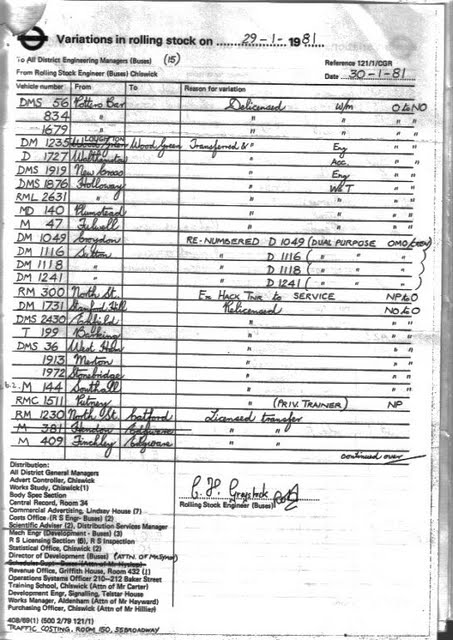 Variations in rolling stock on 29-1-1981
To All District Engineering Managers (Buses) (15)
Reference 121/1/CGR
From Rolling Stock Engineer (Buses) Chiswick
Date 30-1-81
Vehicle number From To Reason for variation
DMS 56 Potters Bar Delicensed W/m O to NO
834 " " " " "
1679 " " " " "
DM 1235 LOUGHTON Wood Green Transferred & " Eng " "
D 1727 Walthamstow " Acc. " "
DMS 1919 New Cross " Eng " "
DMS 1876 Holloway " W&T " "
RML 2631 " " " " "
MD 140 Plumstead " " " "
M 47 Fulwell " " " "
DM 1049 Croydon RE-NUMBERED D 1049 (DUAL PURPOSE OMO/CREW)
DM 1116 Sutton " D 1116 ( " " " )
DM 1118 " " D 1118 ( " " " )
DM 1241 " " D 1241 ( " " " )
RM 300 North St. Ex HACK TNR to SERVICE NP to O
DM 1731 Stamford Hill Relicensed NO to O
DMS 2430 Enfield " " "
T 199 Barking " " "
DMS 36 West Ham " " "
1913 Merton " " "
1972 Stonebridge " " "
M 144 Southall " " "
RMC 1511 Putney " (PRIV. TRAINER) NP
RM 1230 North St. Catford Licensed transfer
M 381 Hendon Edgware " "
M 409 Finchley Edgware " "
continued over
Distribution:
All District General Managers
Advert Controller, Chiswick
Works Study, Chiswick (1)
Body Spec Section
Central Record, Room 34
Commercial Advertising, Lindsay House (7)
Costs Office (R S Engr- Buses) (2)
Scientific Adviser (2), Distribution Services Manager
Mech Engr (Development - Buses) (3)
R S Licensing Section (6), R S Inspection
Statistical Office, Chiswick (2)
Director of Development (Buses)
Revenue Office, Griffith House, Room 432 (1)
Operations Systems Officer 210–212 Baker Street
Training School, Chiswick (Attn of Mr Carter)
Development Engr, Signalling, Telstar House
Works Manager, Aldenham (Attn of Mr Hayward)
Purchasing Officer, Chiswick (Attn of Mr Hillier)
Rolling Stock Engineer (Buses)
408/69(1) (500 2/79 121/1)
TRAFFIC COSTING, ROOM 150, 55 BROADWAY